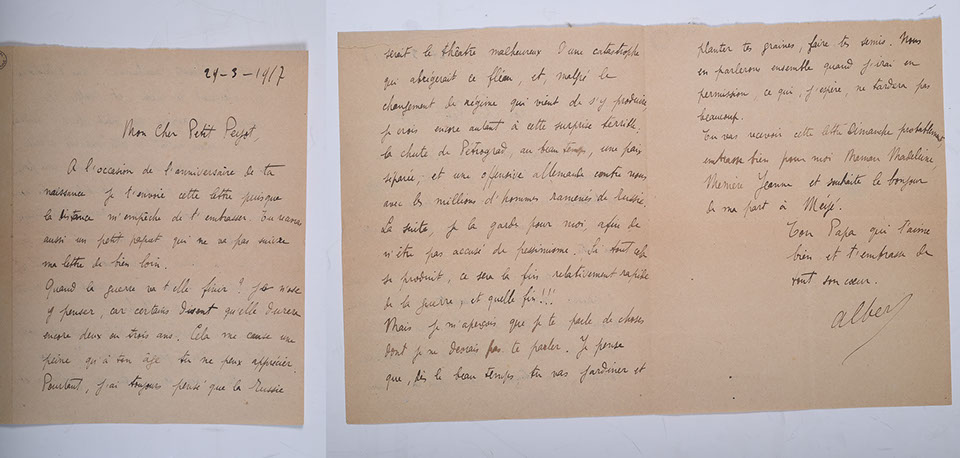 29-3-1917
Mon Cher Petit
A l'occasion de l'anniversaire de ta
naissance je t'envoie cette lettre puisque
la distance m'empêche de t'embrasser. Tu
aussi un petit qui ne va pas suivre
ma lettre de bien loin.
Quand la guerre va t'elle finir ? Je n'ose
y penser, car certains disent qu'elle durera
encore deux ou trois ans. Cela me cause une
peine qu'à ton âge tu ne peux apprécier.
Pourtant, j'ai toujours pensé que la Russie
serait le théâtre malheureux d'une catastrophe
qui abrègerait ce fléau, et, malgré le
changement de régime qui vient de s'y produire
je crois encore autant à cette surprise terrible,
la chute de Pétrograd, au beau temps, une paix
séparée, et une offensive allemande contre nous
avec les millions d'hommes ramenés de Russie.
La suite, je la garde pour moi, afin de
n'être pas accusé de pessimisme. Si tout cela
se produit, ce sera la fin relativement rapide
de la guerre, et quelle fin !!!
Mais je m'aperçois que je te parle de choses
dont je ne devrais pas te parler. Je pense
que, dès le beau temps tu vas jardiner et
planter tes graines, faire tes semis. Nous
en parlerons ensemble quand j'irai en
permission, ce qui, j'espère, ne tardera pas
beaucoup.
Tu vas recevoir cette lettre Dimanche probablement
embrasse bien pour moi Maman Madeleine
Jeanne et souhaite le bonjour
de ma part à
Ton Papa qui t'aime
bien et t'embrasse de
tout son cœur.
Albert